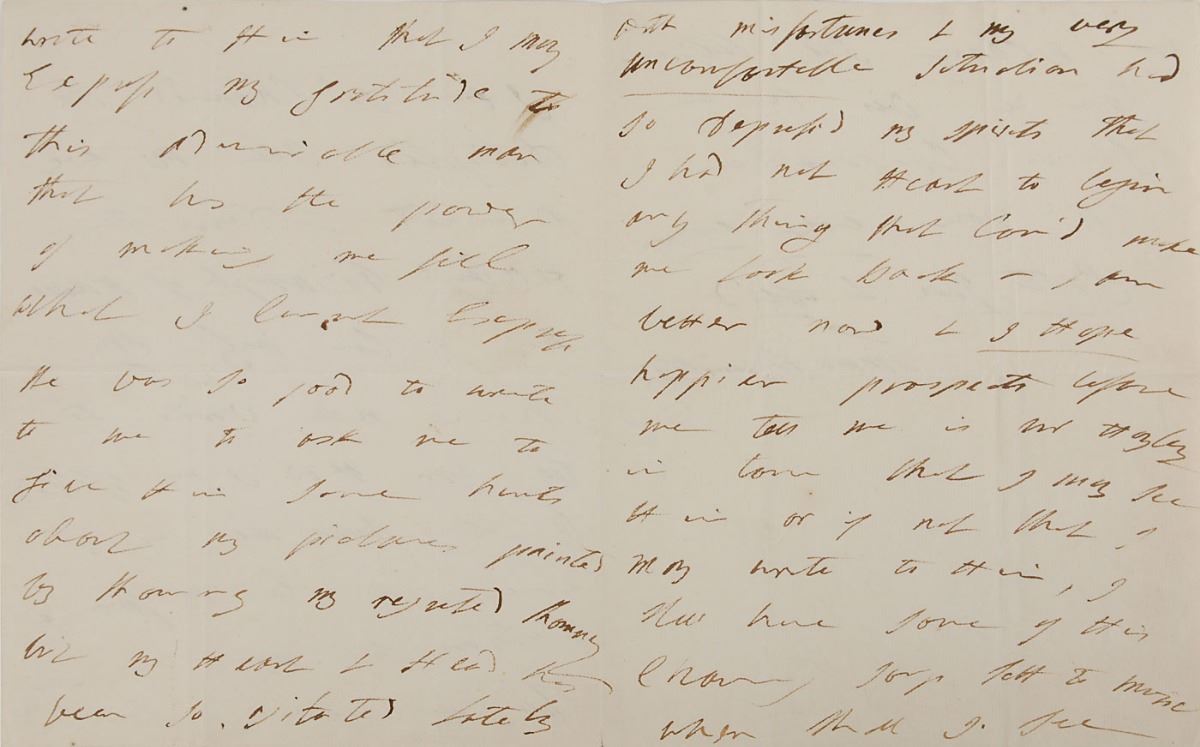 write to Him that I may
Express my gratitude to
this admirable man
that has the power
of making me feel
what I cannot Express
He was so good to write
to me to ask me to
give Him some hints
about my pictures painted
by Romney my regreted Romney
but my Heart & Head has
been so agitated lately
with misfortunes & my very
uncomfortable situation had
so depress'd my spirits that
I had not Heart to begin
any thing that Cou'd make
me look back – I am
better now & I Hope
happier prospects before
me tell me is mr Hayley
in town that I may see
Him or if not that I
may write to Him, I
shall have some of His
Charming songs sett to music
when shall I see